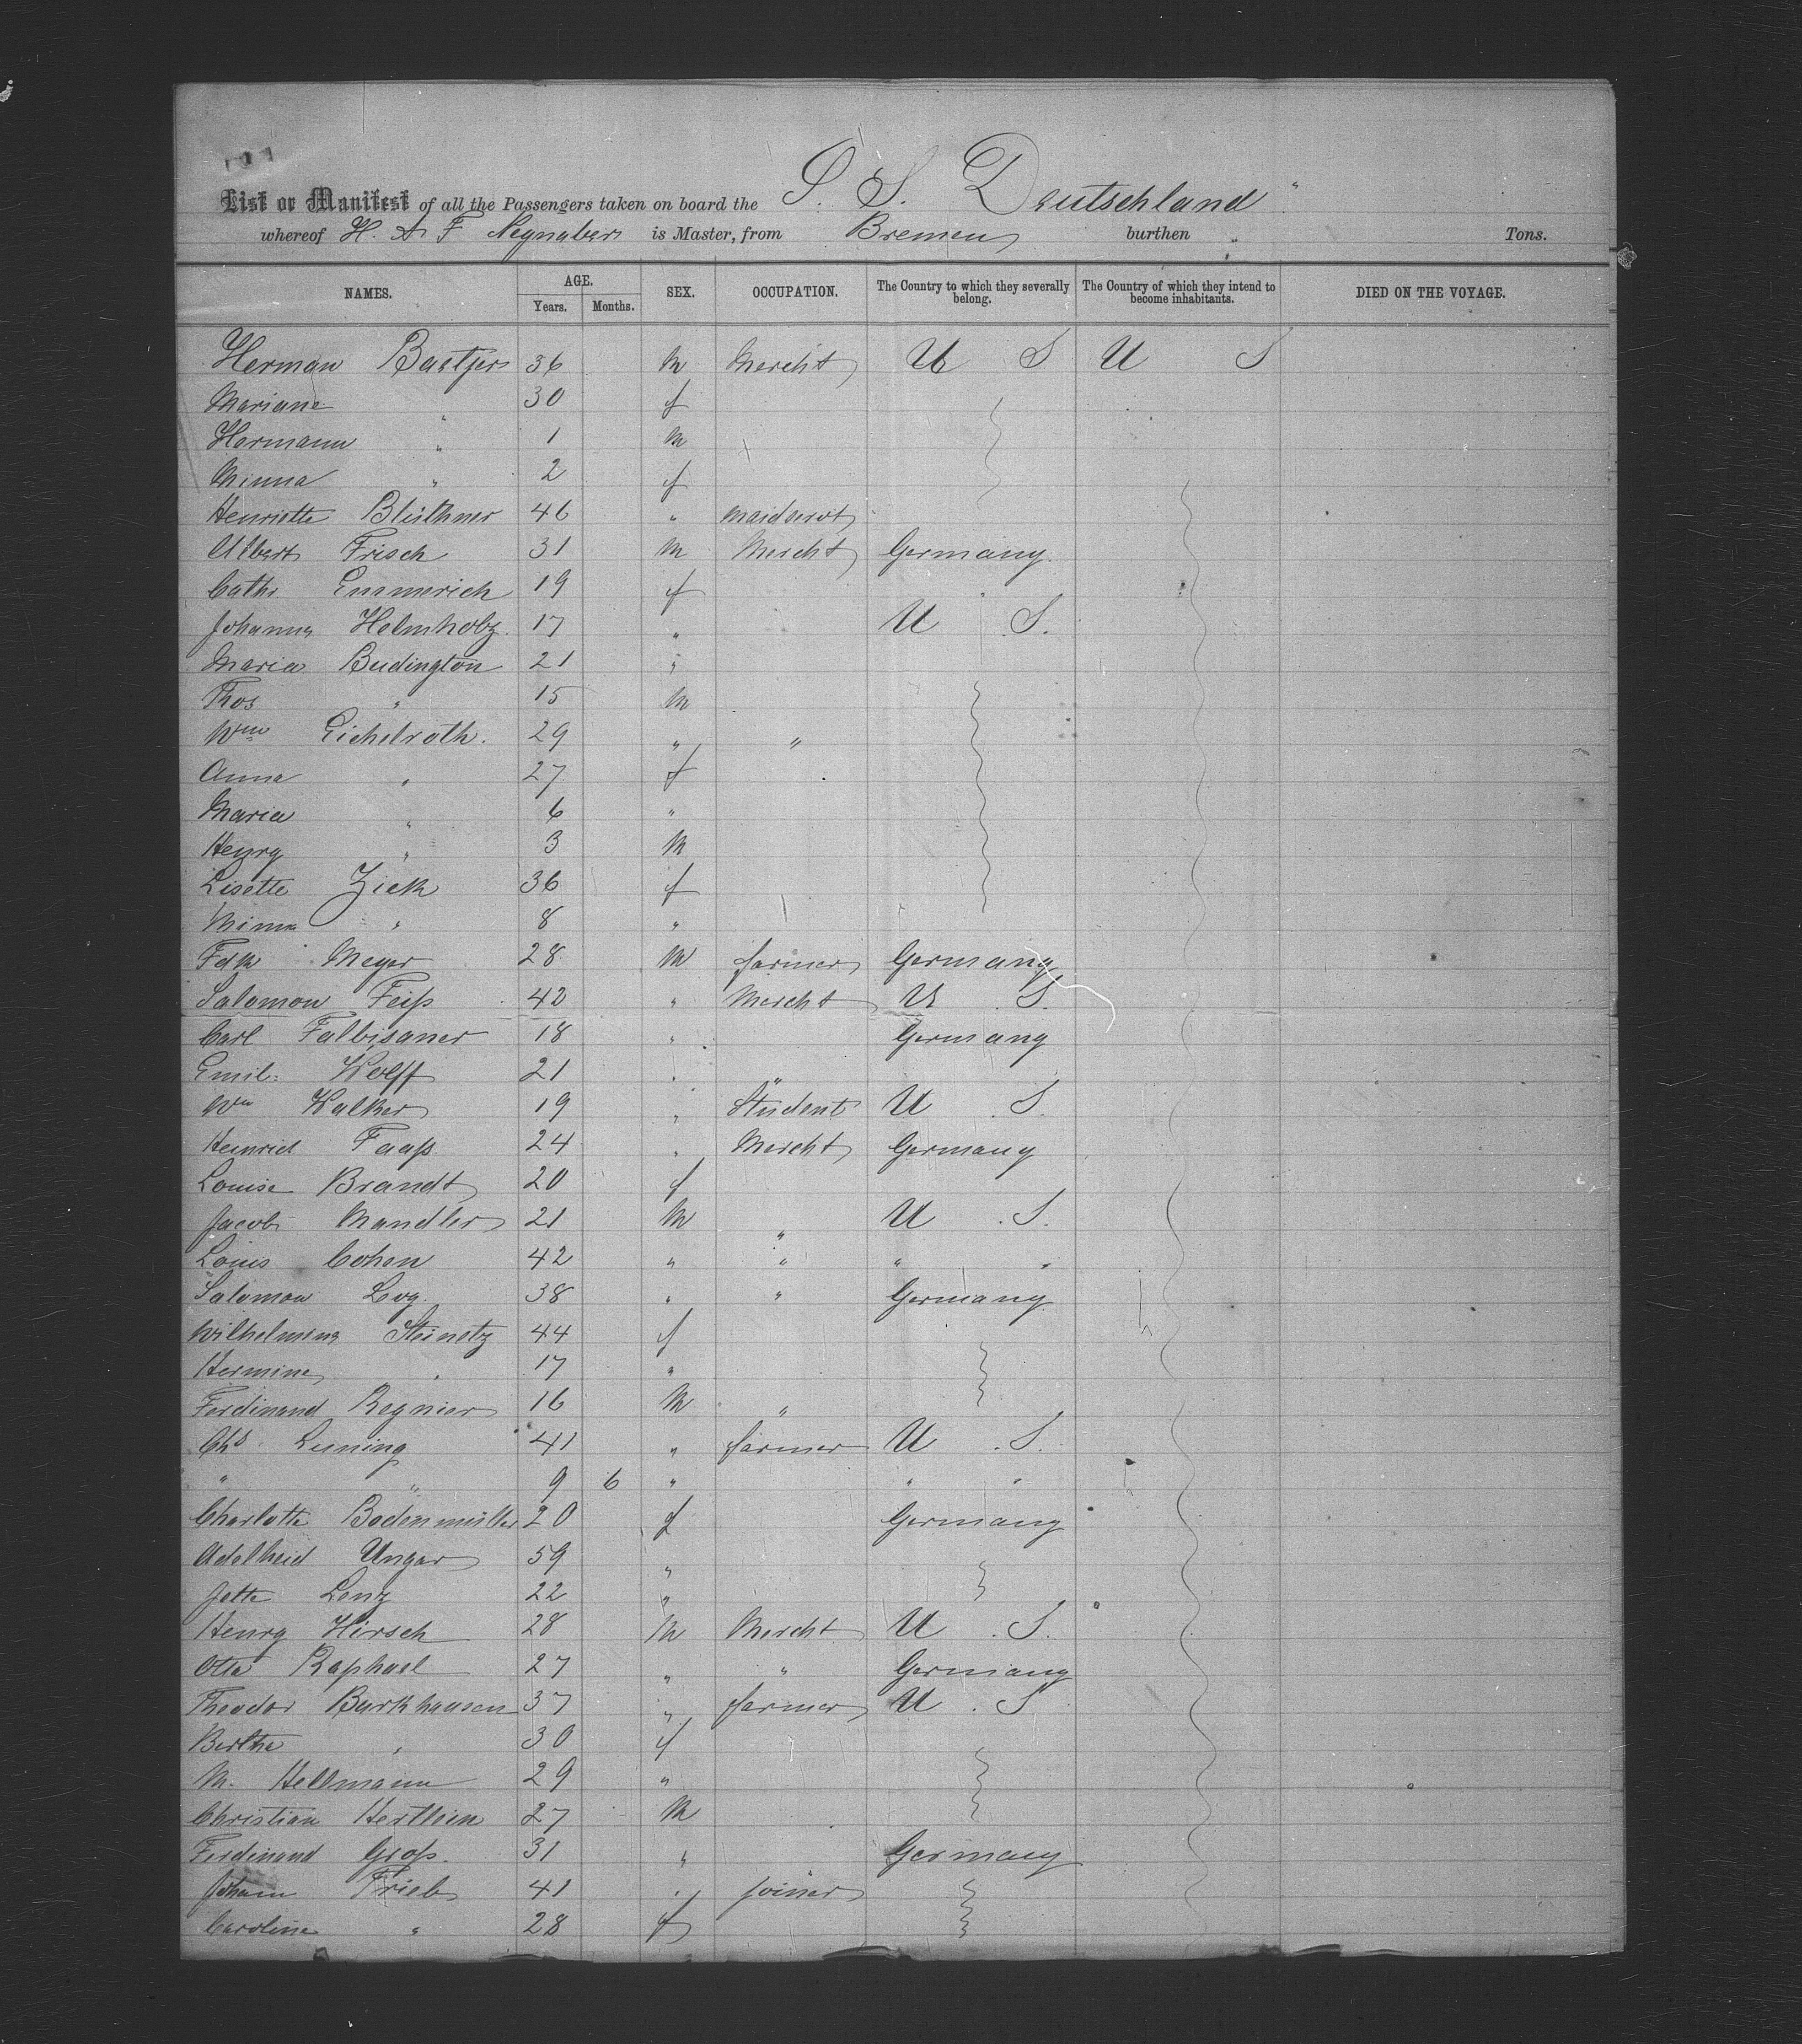 S. S. Deutschland"
List or Manifest of all the Passengers taken on board the
whereof H. A F Neynaber is Master, from Bremen burthen " Tons.
NAMES. AGE. Years. Months. SEX. OCCUPATION. The Country to which they severally belong. The Country of which they intend to become inhabitants. DIED ON THE VOYAGE.
Herman Baetjer 36 m Mercht U S U S
Mariane " 30 f
Hermann " 1 m
Minna " 2 f
Henriette Blüthner 46 " maidservt
Albert Frisch 31 m Mercht Germany
Cathr Emmerich 19 f
Johanna Helmholz 17 " U S.
Maria Budington 21 "
Thos " 15 m
Wm Eichelroth. 29 " "
Anna " 27 f
Maria " 6 "
Henry " 3 m
Lisette Zick 36 f
Minna " 8 "
Fdk Meyer 28 m farmer Germany
Salomon Feiß 42 " Mercht U S.
Carl Falbisaner 18 " Germany
Emil Wolff 21 " "
Wm Walker 19 " Student U S.
Heinrich Faaß 24 " Mercht Germany
Louise Brandt 20 f
Jacob Mandler 21 m " U S.
Louis Cohen 42 " " " "
Salomon Levy. 38 " " Germany
Wilhelmina Steinetz 44 f
Hermine " 17 "
Ferdinand Regnier 16 m "
Chs Luning 41 " farmer U S.
" " 9 6 " " "
Charlotte Bodenmüller 20 f Germany
Adelheid Unger 59 "
Jette Lenz 22 "
Henry Hirsch 28 m Mercht U S.
Otto Raphael 27 " " Germany
Theodor Burkhausen 37 " farmer U S
Berthe " 30 f
M. Hellmann 29 "
Christian Hertlein 27 m
Ferdinand Groß. 31 " Germany
Johann Trieb 41 " joiner
Caroline " 28 f